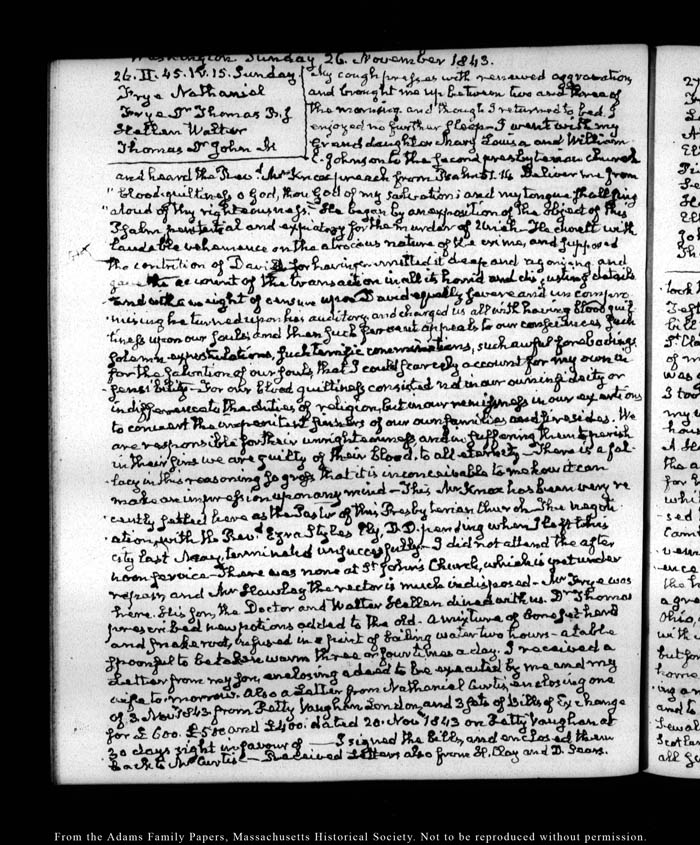 Washington Sunday 26. November 1843.
26. II. 45. IV. 15. Sunday
Frye Nathaniel
Frye Dr. Thomas B. J
Hellen Walter
Thomas Dr. John M
My cough presses with renewed aggravation,
and brought me up between two and three of
the morning and though I returned to bed, I
enjoyed no further sleep— I went with my
Grand daughter Mary Louisa and William
C. Johnson to the second presbyterian Church
and heard the Revd. Mr Knox preach from Psalm 51. 14 Deliver me from
"blood-guiltiness o God, thou God of my salvation: and my tongue shall sing
"aloud of thy righteousness." He began by an exposition of the object of this
Psalm penitential and expiatory for the murder of Uriah. He dwelt with
laudable vehemence on the atrocious nature of the crime, and supposed
the contrition of David for having committed it deep and agonizing and
gave the account of the transaction in all its horrid and disgusting details
and with a weight of censure upon David equally severe and uncompro-
mising he turned upon his auditory and charged us all with having blood guil-
tiness upon our souls; and then such fervent appeals to our consciences such
solemn expostulations, such terrific comminations, such awful forebodings
for the salvation of our souls, that I could scarcely account for my own in-
sensibility— For our blood guiltiness consisted not in our own infidelity or
indifference to the duties of religion, but in our remissness in our exertions
to convert the impenitent sinners of our own families and firesides. We
are responsible for their unrighteousness and in suffering them to perish
in their sins we are guilty of their blood, to all eternity— There is a fal-
lacy in this reasoning so gross that it is inconceivable to me how it can
make an impression upon any mind— This Mr Knox has been very re-
cently settled here as the Pastor of this Presbyterian Church. The negoti-
ation, with the Revd. Ezra Styles Ely, D.D. pending when I left this
city last May, terminated unsuccessfully— I did not attend the after
noon service— There was none at St. John's Church, which is yet under
repair, and Mr Hawley the rector is much indisposed— Mr Frye was
here. His son, the Doctor and Walter Hellen dined with us. Dr. Thomas
prescribed new potions added to the old— a mixture of boneset herb
and snake root, infused in a pint of boiling water two hours— a table
spoonful to be taken warm three or four times a day. I received a
Letter from my son, enclosing a deed to be executed by me and my
wife to-morrow. Also a Letter from Nathaniel Curtis, enclosing one
of 3. Novr. 1843 from Petty Vaughan London, and 3 sets of bills of Exchange
for £600. £500 and £400. dated 20. Novr. 1843 on Petty Vaughan at
30 days sight in favour of —— I signed the bills, and enclosed them
back to Mr Curtis— Received Letters also from H. Clay and D. Sears.
From the Adams Family Papers, Massachusetts Historical Society. Not to be reproduced without permission.